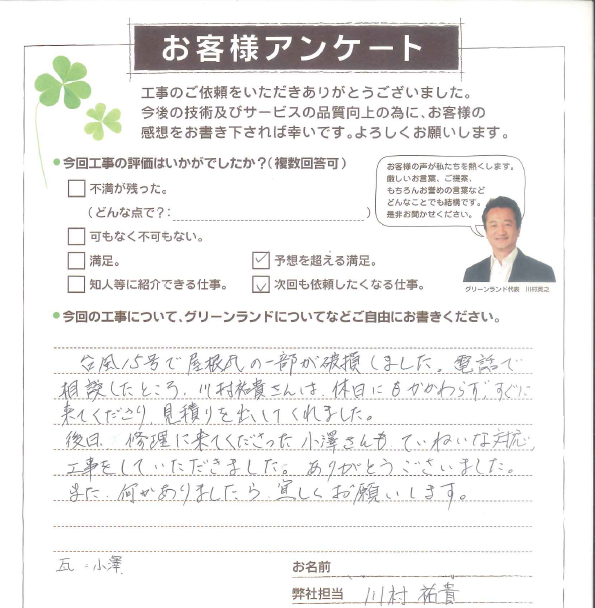 お客様アンケート
工事のご依頼をいただきありがとうございました。
今後の技術及びサービスの品質向上の為に、お客様の
感想をお書き下されば幸いです。よろしくお願いします。
今回工事の評価はいかがでしたか?(複数回答可)
不満が残った。
(どんな点で?: )
可もなく不可もない。
満足。
予想を超える満足。
知人等に紹介できる仕事。
次回も依頼したくなる仕事。
お客様の声が私たちを熱くします。
厳しいお言葉、ご提案、
もちろんお誉めの言葉など
どんなことでも結構です。
是非お聞かせください。
グリーンランド代表 川村英之
今回の工事について、グリーンランドについてなどご自由にお書きください。
台風15号で屋根瓦の一部が破損しました。電話で
相談したところ、川村祐貴さんは、休日にもかかわらず、すぐに
来てくださり、見積りを出してくれました。
後日、修理に来てくださった小澤さんも ていねいな対応、
工事をしていただきました。ありがとうございました。
また、何かありましたら 宜しくお願いします。
瓦:小澤
お名前
弊社担当 川村 祐貴